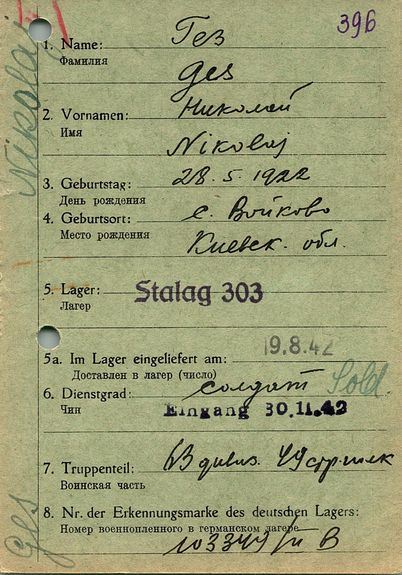 396
1. Name: Гез
Фамилия
Ges
2. Vornamen: Николай
Имя
Nikolaj
3. Geburtstag: 28. 5. 1922
День рождения
4. Geburtsort: с. Войково
Место рождения
Киевск. обл.
5. Lager: Stalag 303
Лагер
5a. Im Lager eingeliefert am: 19.8.42
Доставлен в лагер (число)
6. Dienstgrad: солдат Sold.
Чин
Eingang 30.11.42
7. Truppenteil: дивиз. 49
Воинская часть
8. Nr. der Erkennungsmarke des deutschen Lagers:
Номер военнопленного в германском лагере
103349/II B
Nikolaj
Ges